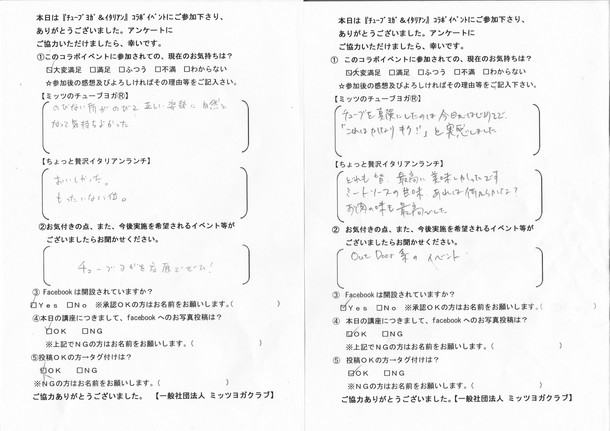 本日は『ﾁｭｰﾌﾞﾖｶﾞ&ｲﾀﾘｱﾝ』ｺﾗﾎﾞｲﾍﾞﾝﾄにご参加下さり、
ありがとうございました。アンケートに
ご協力いただけましたら、幸いです。
①このコラボイベントに参加されての、現在のお気持ちは？
☑大変満足 □満足 □ふつう □不満 □わからない
☆参加後の感想及びよろしければその理由等をご記入さい。
【ミッツのチューブヨガ®】
のびない所がのびて 正しい姿勢に自然と
なって気持ちよかった
【ちょっと贅沢イタリアンランチ】
おいしかった。
もったいない位。
②お気付きの点、また、今後実施を希望されるイベント等が
ございましたらお聞かせください。
チューブヨガを
③ Facebookは開設されていますか？
☑Yes □No ※承認OKの方はお名前をお願いします。( )
④本日の講座につきまして、facebookへのお写真投稿は？
☑OK □NG
※上記でNGの方はお名前をお願いします。( )
⑤投稿OKの方ータグ付けは？
☑OK □NG
※NGの方はお名前をお願いします。( )
ご協力ありがとうございました。 【一般社団法人 ミッツヨガクラブ】
本日は『ﾁｭｰﾌﾞﾖｶﾞ&ｲﾀﾘｱﾝ』ｺﾗﾎﾞｲﾍﾞﾝﾄにご参加下さり、
ありがとうございました。アンケートに
ご協力いただけましたら、幸いです。
① このコラボイベントに参加されての、現在のお気持ちは？
☑大変満足 □満足 □ふつう □不満 □わからない
☆参加後の感想及びよろしければその理由等をご記入下さい。
【ミッツのチューブヨガ®】
チューブを真剣にしたのは今日がはじめてで、
「これはかなりキク!!」と実感しました
【ちょっと贅沢イタリアンランチ】
どれも皆 最高に美味しかったです
ミートソースの甘味 あれは何んだろな？
お肉の味も最高でした
② お気付きの点、また、今後実施を希望されるイベント等が
ございましたらお聞かせください。
Out Door系の イベント
③ Facebookは開設されていますか？
☑Yes □No ※承認OKの方はお名前をお願いします。( )
④ 本日の講座につきまして、facebookへのお写真投稿は？
☑OK □NG
※上記でNGの方はお名前をお願いします。( )
⑤ 投稿OKの方ータグ付けは？
☑OK □NG
※NGの方はお名前をお願いします。( )
ご協力ありがとうございました。【一般社団法人 ミッツヨガクラブ】